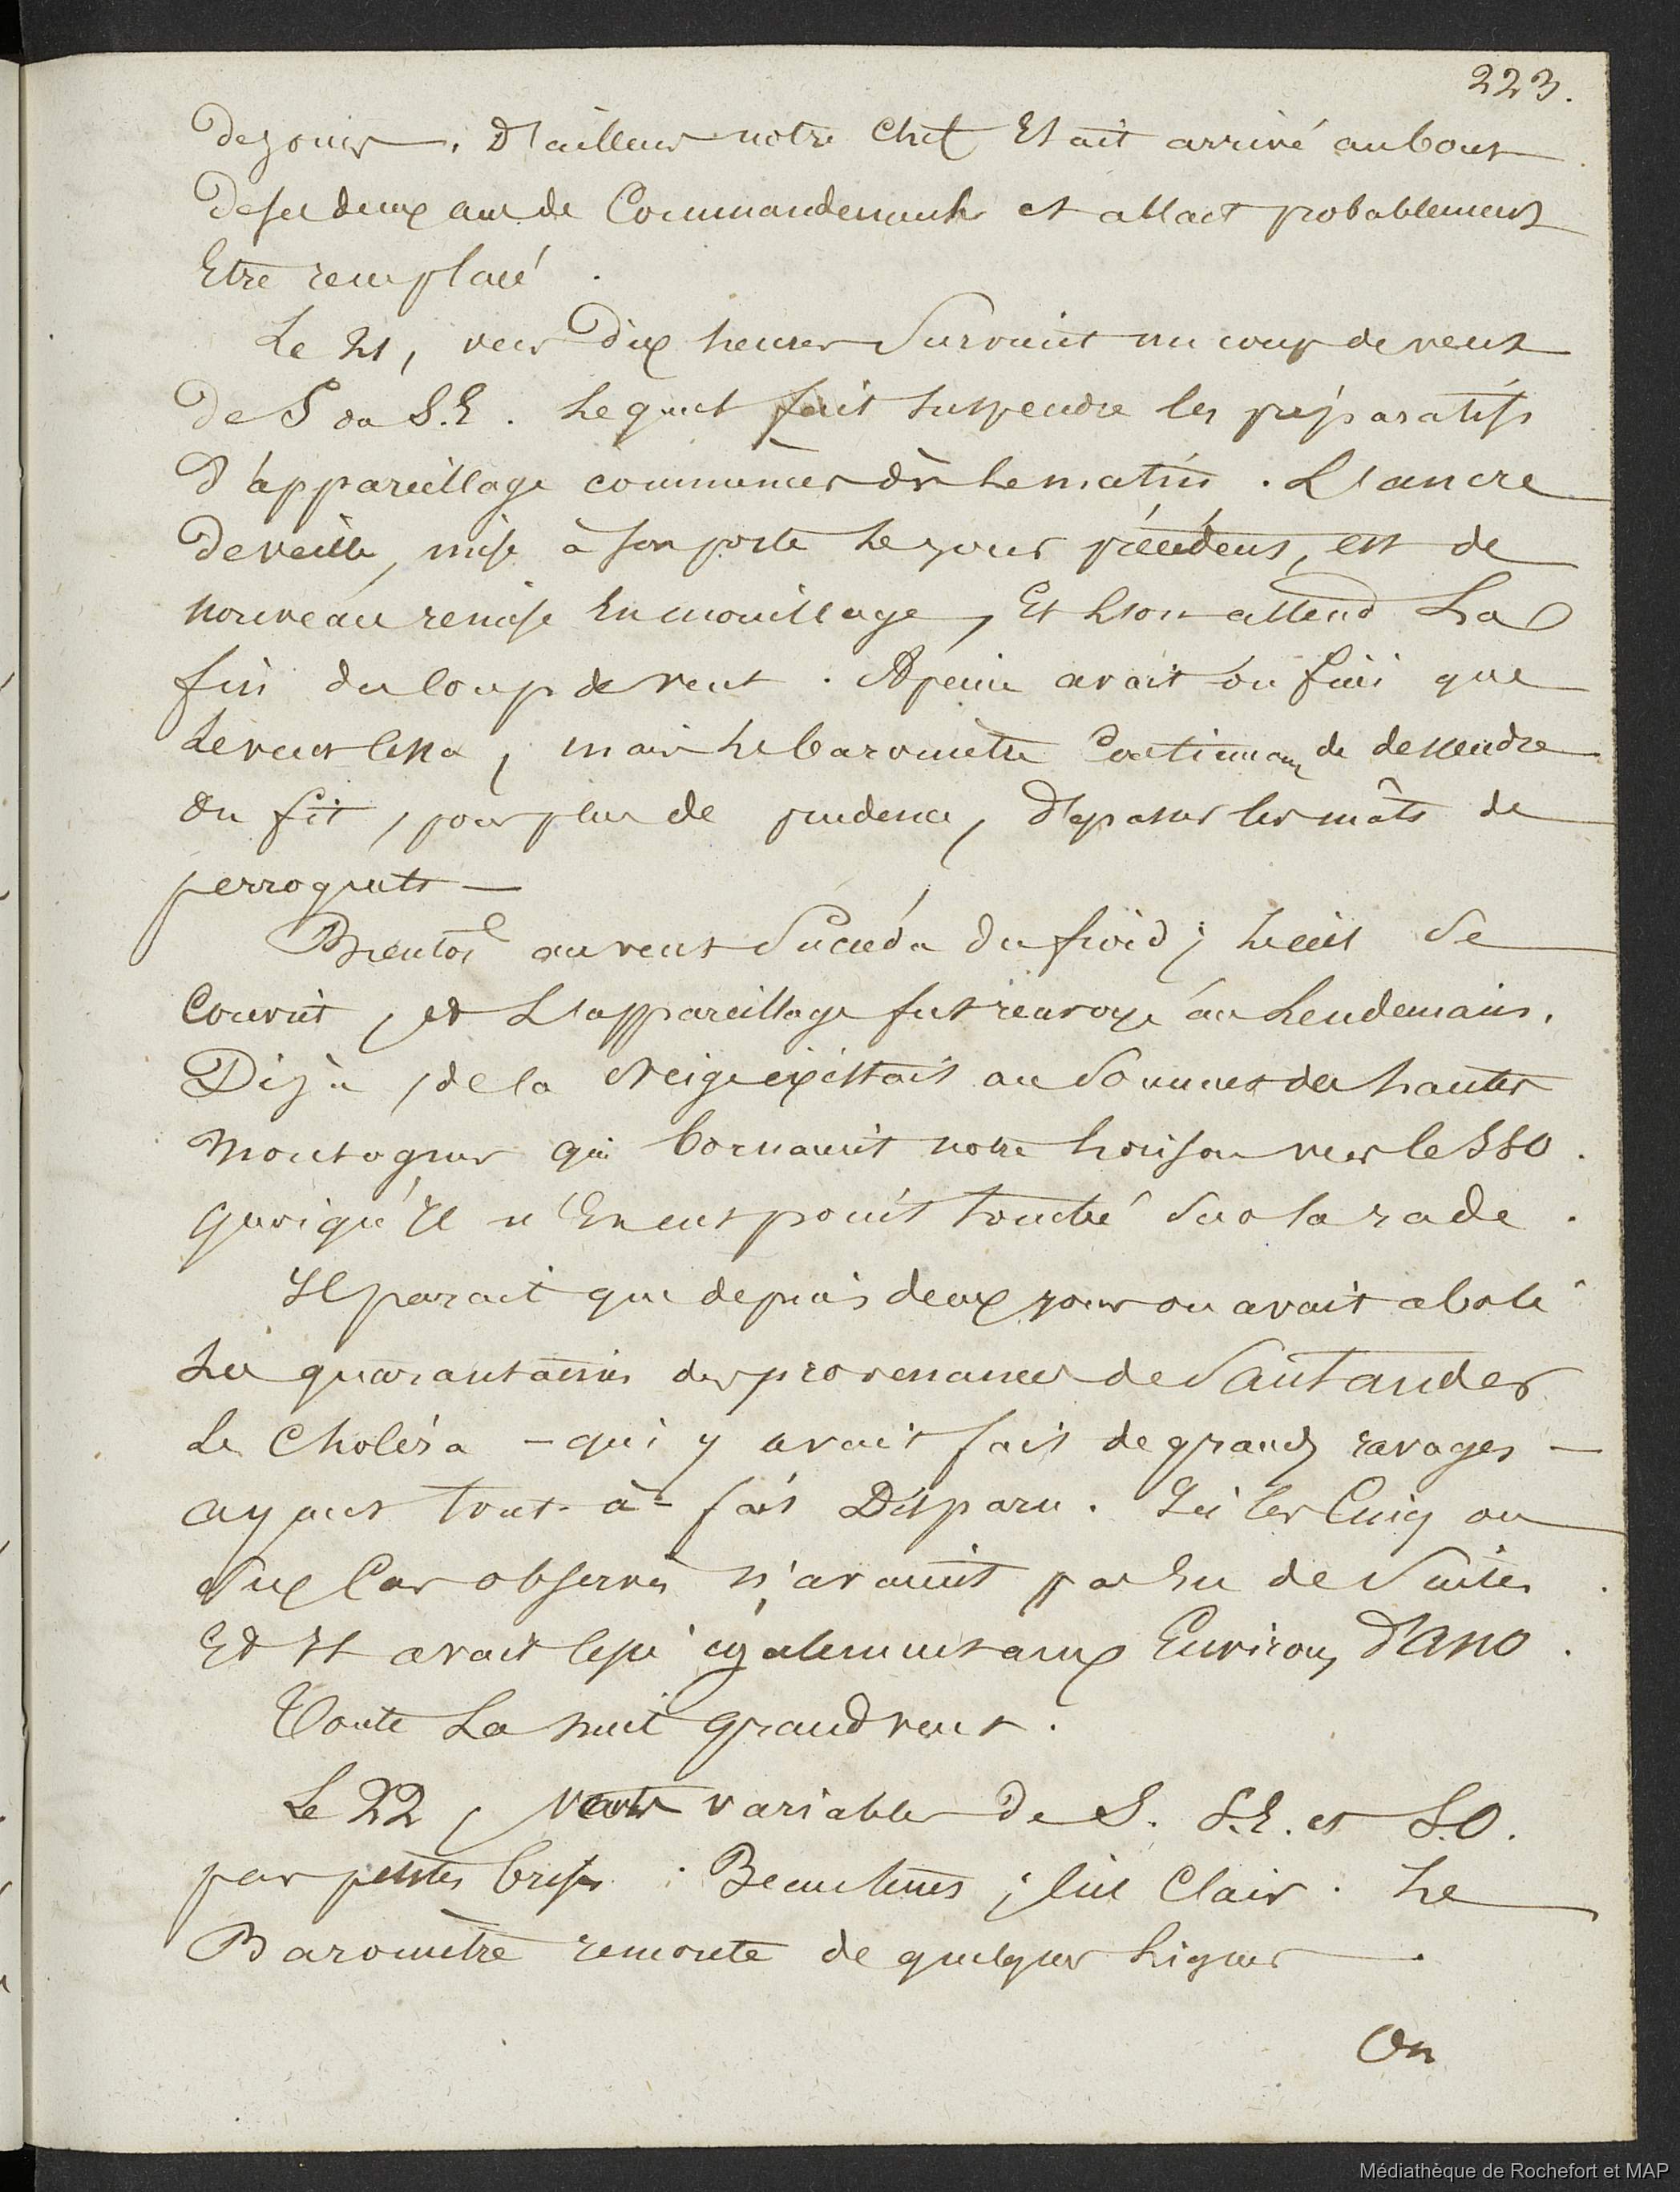 223.
de jours. D'ailleurs notre Chef Etait arrivé au bout
de ses deux ans de Commandement et allait probablement
Etre remplacé.
Le 21, vers Dix heures Survint un coup de vent
de S au S.E. Lequel fait suspendre les préparatifs
d'appareillage commencés dès le matin. L'ancre
de veille, mise à son poste le jour précédent, est de
nouveau remise En mouillage, Et l'on attend La
fin du Coup de vent. A peine avait-on fini que
Le vent cessa, mais le baromètre Continuant de descendre
On fit, pour plus de prudence, dépasser les mâts de
perroquets —
Bientôt au vent Succéda du froid; le ciel Se
Couvrit, et L'appareillage fut renvoyé au Lendemain.
Déjà, de la Neige existait au Sommet des hautes
Montagnes qui bornaient notre horison vers le SSO.
quoiqu'Il n'En eut point tombé Sur la rade.
Il parait que depuis deux jours on avait aboli
Les quarantaines des provenances de Santander
Le Choléra — qui y avait fait de grands ravages —
ayant tout-à-fait Disparu. Ici les Cinq ou
Six Cas observés n'avaient pas Eu de Suites
Et Il avait cessé également aux Environs d'Anso.
Toute La nuit Grand vent.
Le 22, Vents variables de S. S.E. et S.O.
par petites brises. Beau tems; ciel Clair. Le
Baromètre remonte de quelques lignes.
On
Médiathèque de Rochefort et MAP